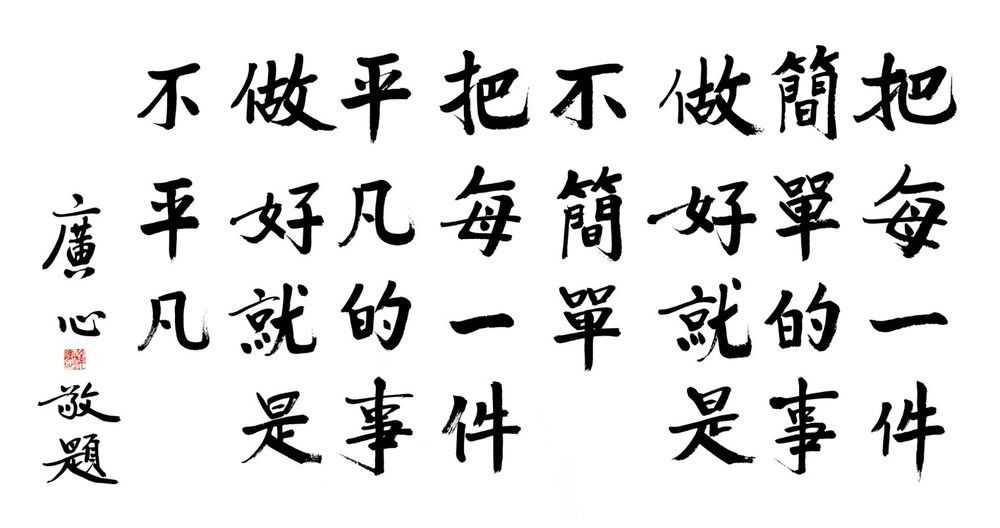 把每一件
簡單的事
做好就是
不簡單
把每一件
平凡的事
做好就是
不平凡
廣心敬題